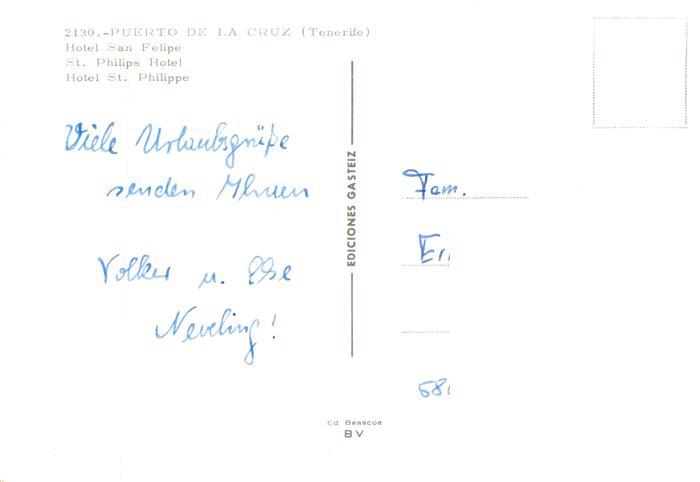 2130.-PUERTO DE LA CRUZ (Tenerife)
Hotel San Felipe
St. Philips Hotel
Hotel St. Philippe
Viele Urlaubsgrüße
senden Ihnen
Volker u. Else
Neveling!
EDICIONES GASTEIZ
Fam.
58
Ed Beascoa
BV